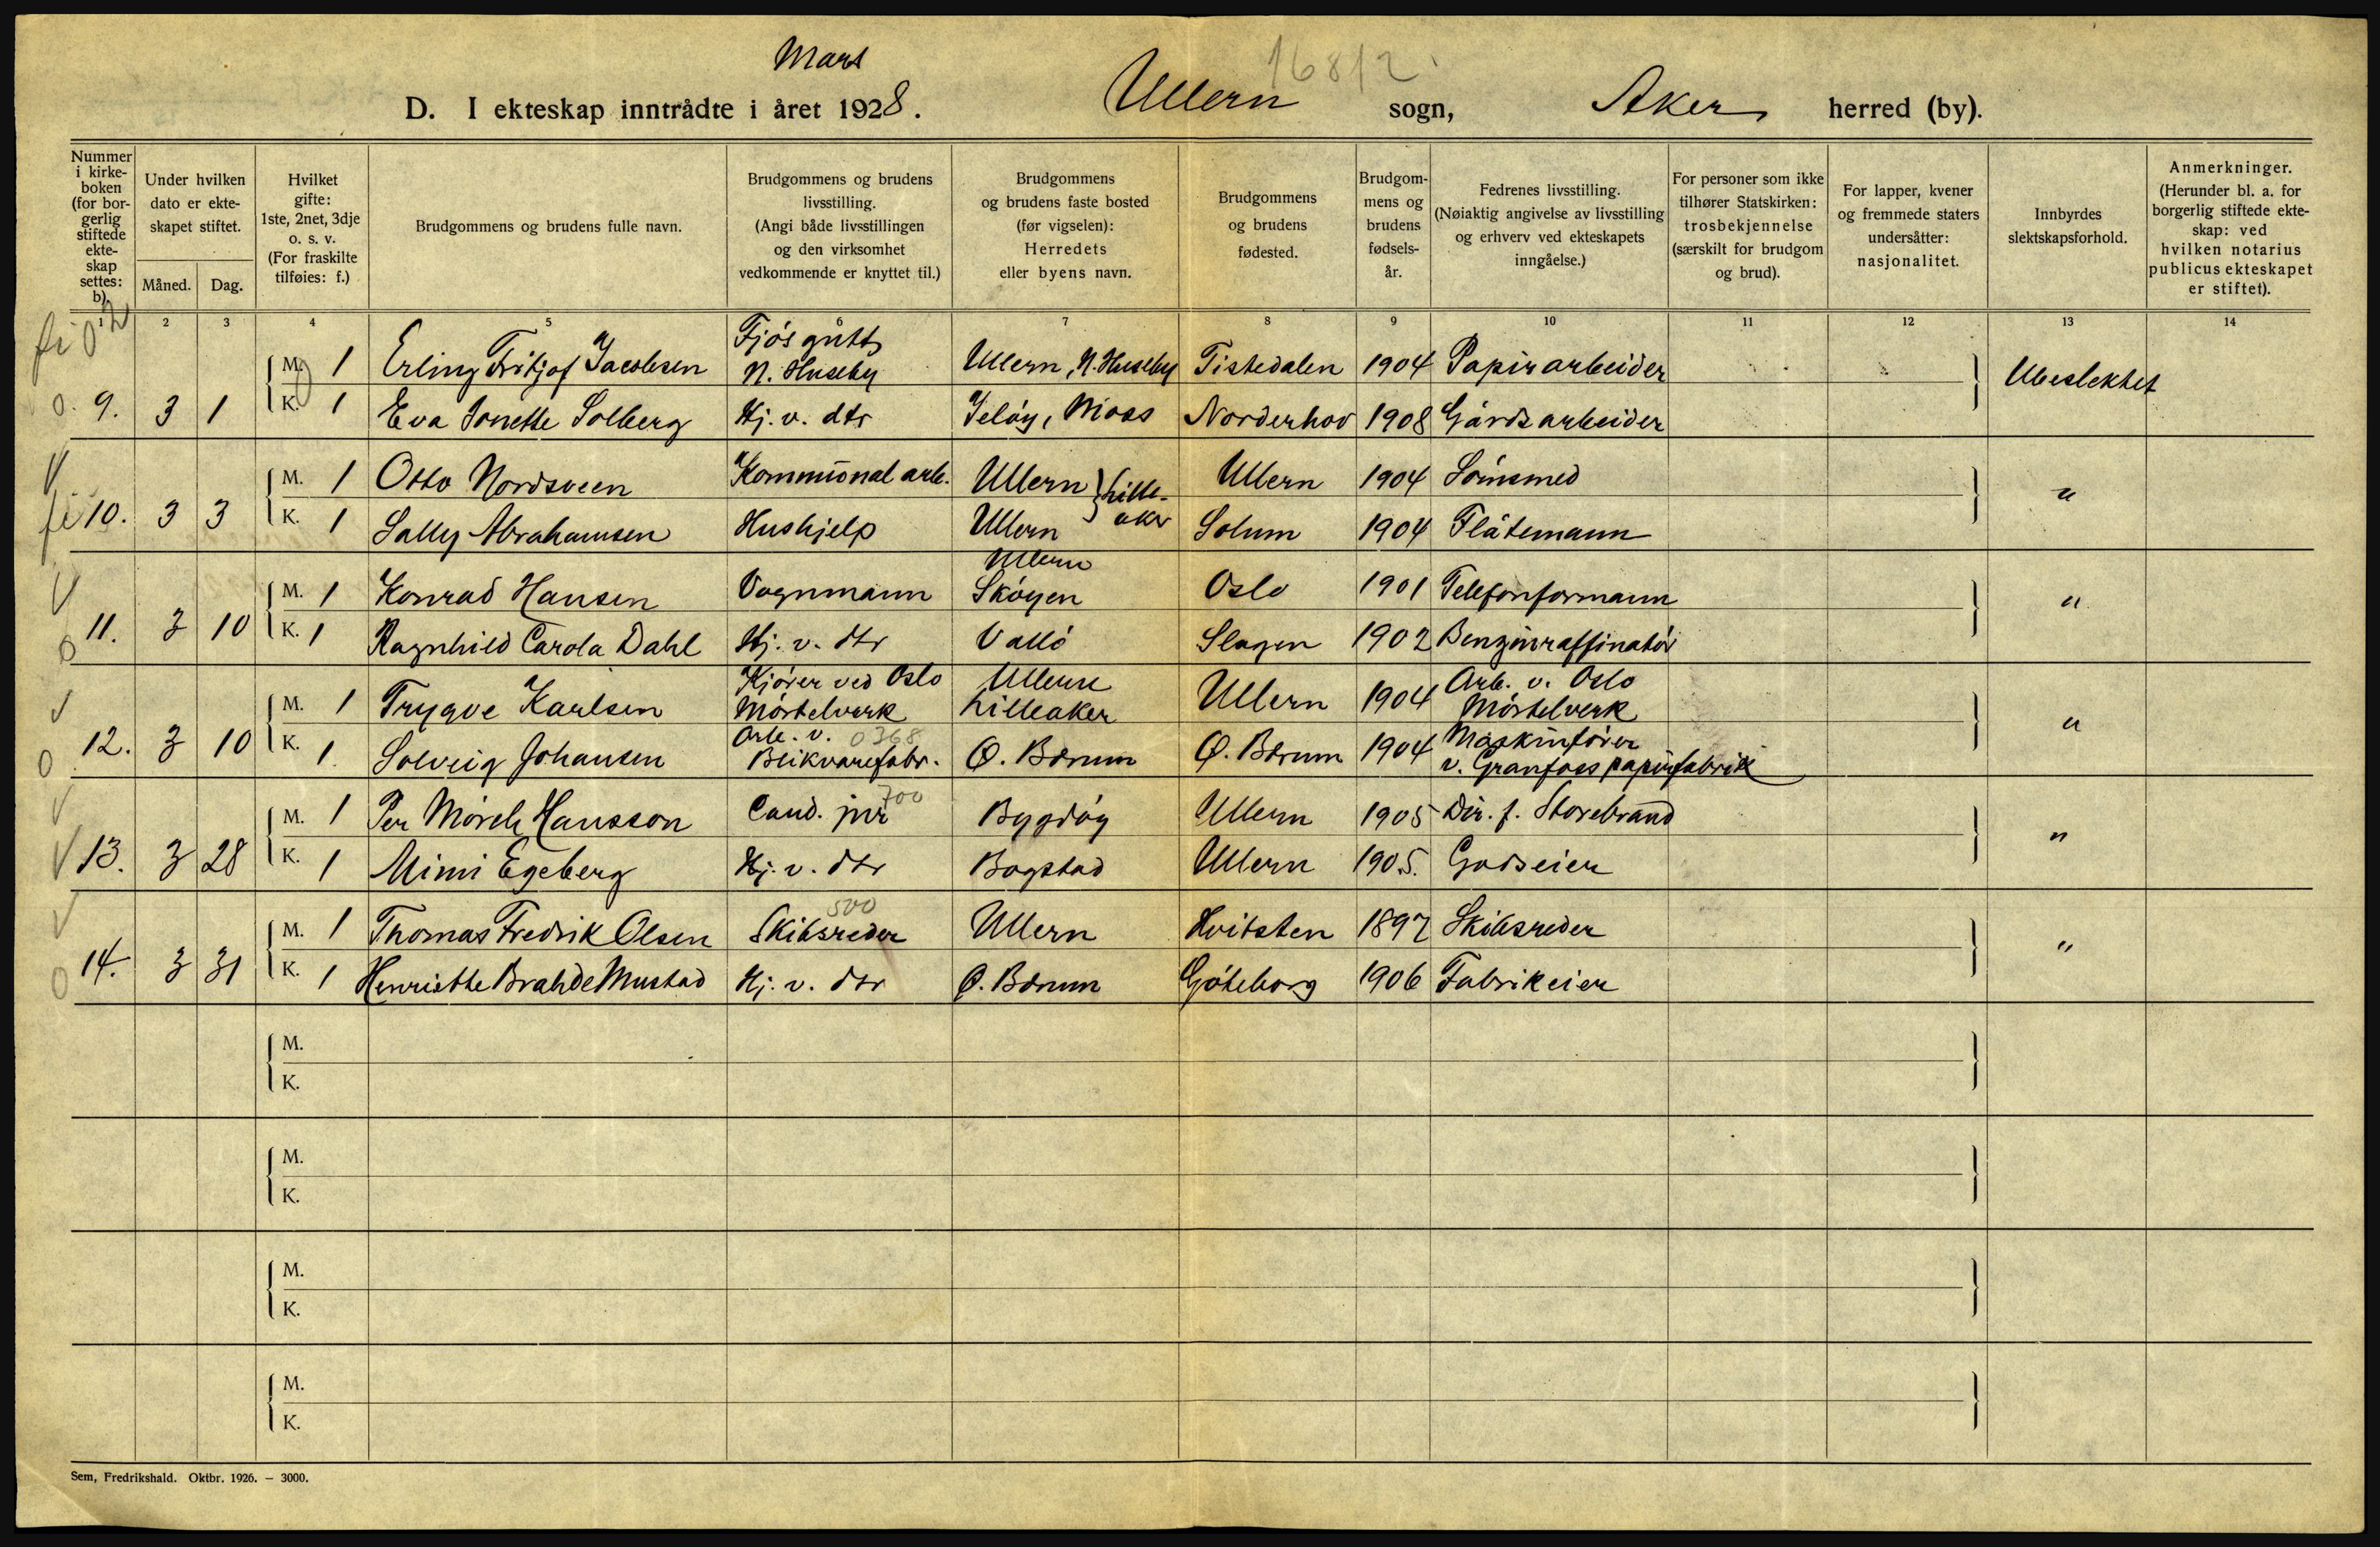 Mars
16812.
D. I ekteskap inntrådte i året 1928. Ullern sogn, Aker herred (by).
Nummer i kirke-boken (for bor-gerlig stiftede ekte-skap settes: b).
Under hvilken dato er ekte-skapet stiftet.
Måned. Dag.
Hvilket gifte: 1ste, 2net, 3dje o. s. v. (For fraskilte tilføies: f.)
Brudgommens og brudens fulle navn.
Brudgommens og brudens livsstilling. (Angi både livsstillingen og den virksomhet vedkommende er knyttet til.)
Brudgommens og brudens faste bosted (før vigselen): Herredets eller byens navn.
Brudgommens og brudens fødested.
Brudgom-mens og brudens fødsels-år.
Fedrenes livsstilling. (Nøiaktig angivelse av livsstilling og erhverv ved ekteskapets inngåelse.)
For personer som ikke tilhører Statskirken: trosbekjennelse (særskilt for brudgom og brud).
For lapper, kvener og fremmede staters undersåtter: nasjonalitet.
Innbyrdes slektskapsforhold.
Anmerkninger. (Herunder bl. a. for borgerlig stiftede ekte-skap: ved hvilken notarius publicus ekteskapet er stiftet).
1 2 3 4 5 6 7 8 9 10 11 12 13 14
M. 1 Erling Fritjof Jacobsen Fjøsgutt N. Huseby Ullern, N. Huseby Tistedalen 1904 Papirarbeider Ubeslektet
9. 3 1 K. 1 Eva Jonette Solberg Hj. v. dtr Jeløy, Moss Norderhov 1908 Gårdsarbeider
M. 1 Otto Nordsveen Kommunal arb. Ullern } Lille- Ullern 1904 Grovsmed "
10. 3 3 K. 1 Sally Abrahamsen Hushjelp Ullern aker Solum 1904 Flåtemann
M. 1 Konrad Hansen Vognmann Ullern Skøyen Oslo 1901 Telefonformann "
11. 3 10 K. 1 Ragnhild Carola Dahl Hj. v. dtr Vallø Slagen 1902 Benzinraffinatør
M. 1 Trygve Karlsen Kjører ved Oslo Mørtelverk Ullern Lilleaker Ullern 1904 Arb. v. Oslo Mørtelverk "
12. 3 10 K. 1 Solveig Johansen Arb. v. 0368 Blikvarefabr. Ø. Bærum Ø. Bærum 1904 Maskinfører v. Granfoss papirfabrik
M. 1 Per Mørch Hansson Cand. jur 700 Bygdøy Ullern 1905 Dir. f. Storebrand "
13. 3 28 K. 1 Mimi Egeberg Hj. v. dtr Bogstad Ullern 1905. Godseier
M. 1 Thomas Fredrik Olsen 500 Skibsreder Ullern Hvitsten 1897 Skibsreder "
14. 3 31 K. 1 Henriette Brahde Mustad Hj. v. dtr Ø. Bærum Gøteborg 1906 Fabrikeier
M.
K.
M.
K.
M.
K.
M.
K.
Sem, Fredrikshald. Oktbr. 1926. – 3000.